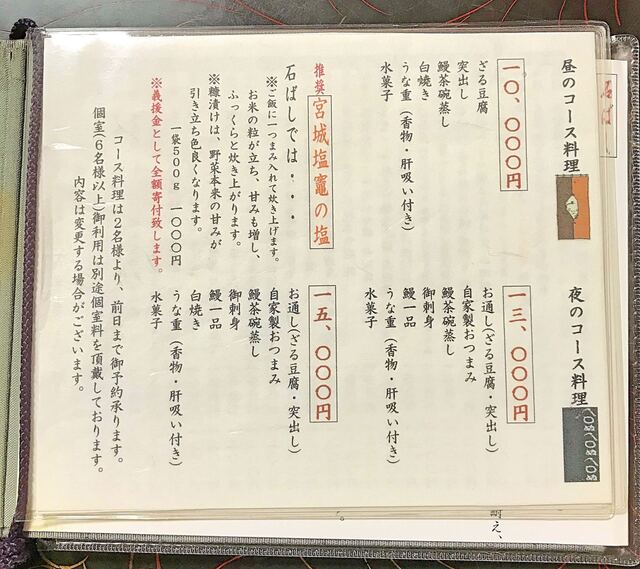 昼のコース料理
一〇、〇〇〇円
ざる豆腐
突出し
鰻茶碗蒸し
白焼き
うな重(香物・肝吸い付き)
水菓子
夜のコース料理
一三、〇〇〇円
お通し(ざる豆腐・突出し)
自家製おつまみ
鰻茶碗蒸し
御刺身
鰻一品
うな重(香物・肝吸い付き)
水菓子
一五、〇〇〇円
お通し(ざる豆腐・突出し)
自家製おつまみ
鰻茶碗蒸し
御刺身
鰻一品
白焼き
うな重(香物・肝吸い付き)
水菓子
推奨 宮城塩竈の塩
石ばしでは・・・
※ご飯に一つまみ入れて炊き上げます。
お米の粒が立ち、甘みも増し、
ふっくらと炊き上がります。
※糠漬けは、野菜本来の甘みが
引き立ち色良くなります。
一袋500g 一〇〇〇円
※義援金として全額寄付致します。
コース料理は2名様より、前日まで御予約承ります。
個室(6名様以上)御利用は別途個室料を頂戴しております。
内容は変更する場合がございます。
石ば